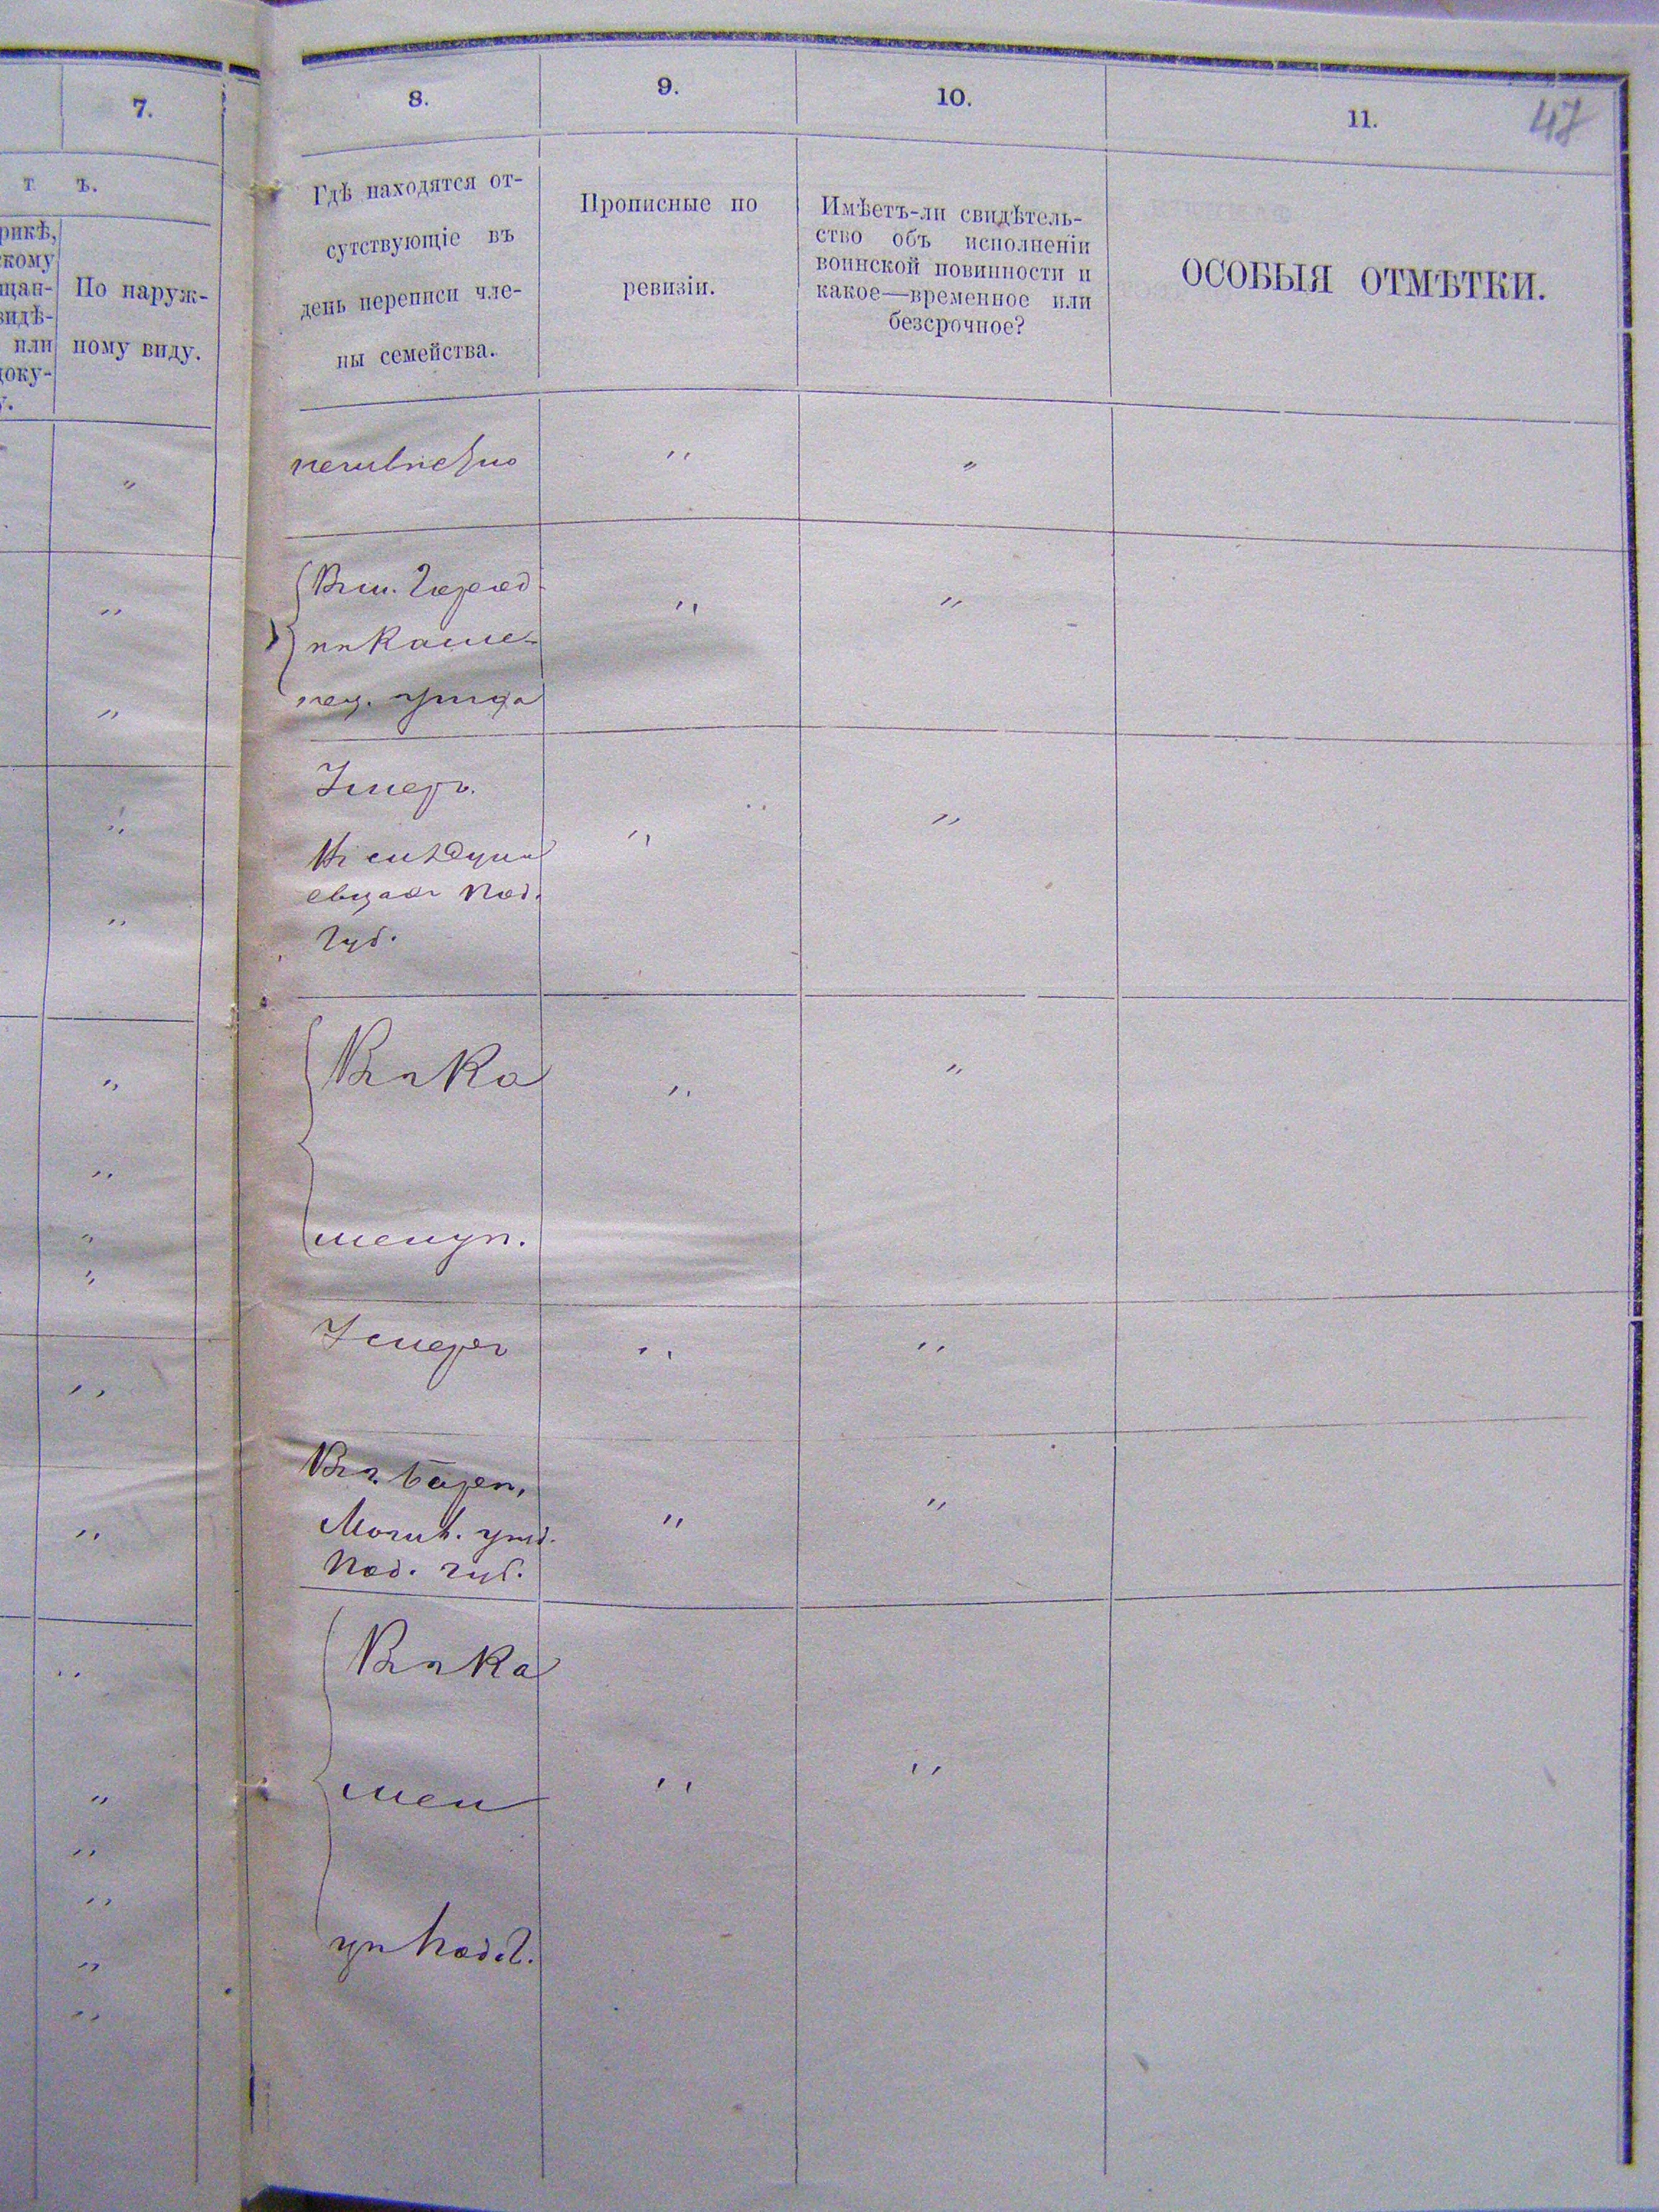 47
7.
8.
9.
10.
11.
т ъ.
рикѣ,
скому
щан-
видѣ-
или
доку-
у.
По наруж-
ному виду.
Гдѣ находятся от-
сутствующіе въ
день переписи чле-
ны семейства.
Прописные по
ревизіи.
Имѣетъ-ли свидѣтель-
ство объ исполненіи
воинской повинности и
какое—временное или
безсрочное?
ОСОБЫЯ ОТМѢТКИ.
неизвѣстно
Въ м. Город-
кѣ Каме-
нец. уѣзда
Умеръ.
Под.
Губ.
Въ г. Ка
менцѣ.
Умеръ
Въ г. Барѣ,
Могил. уѣзд.
Под. губ.
Въ г. Ка
мен
цѣ Под. Г.